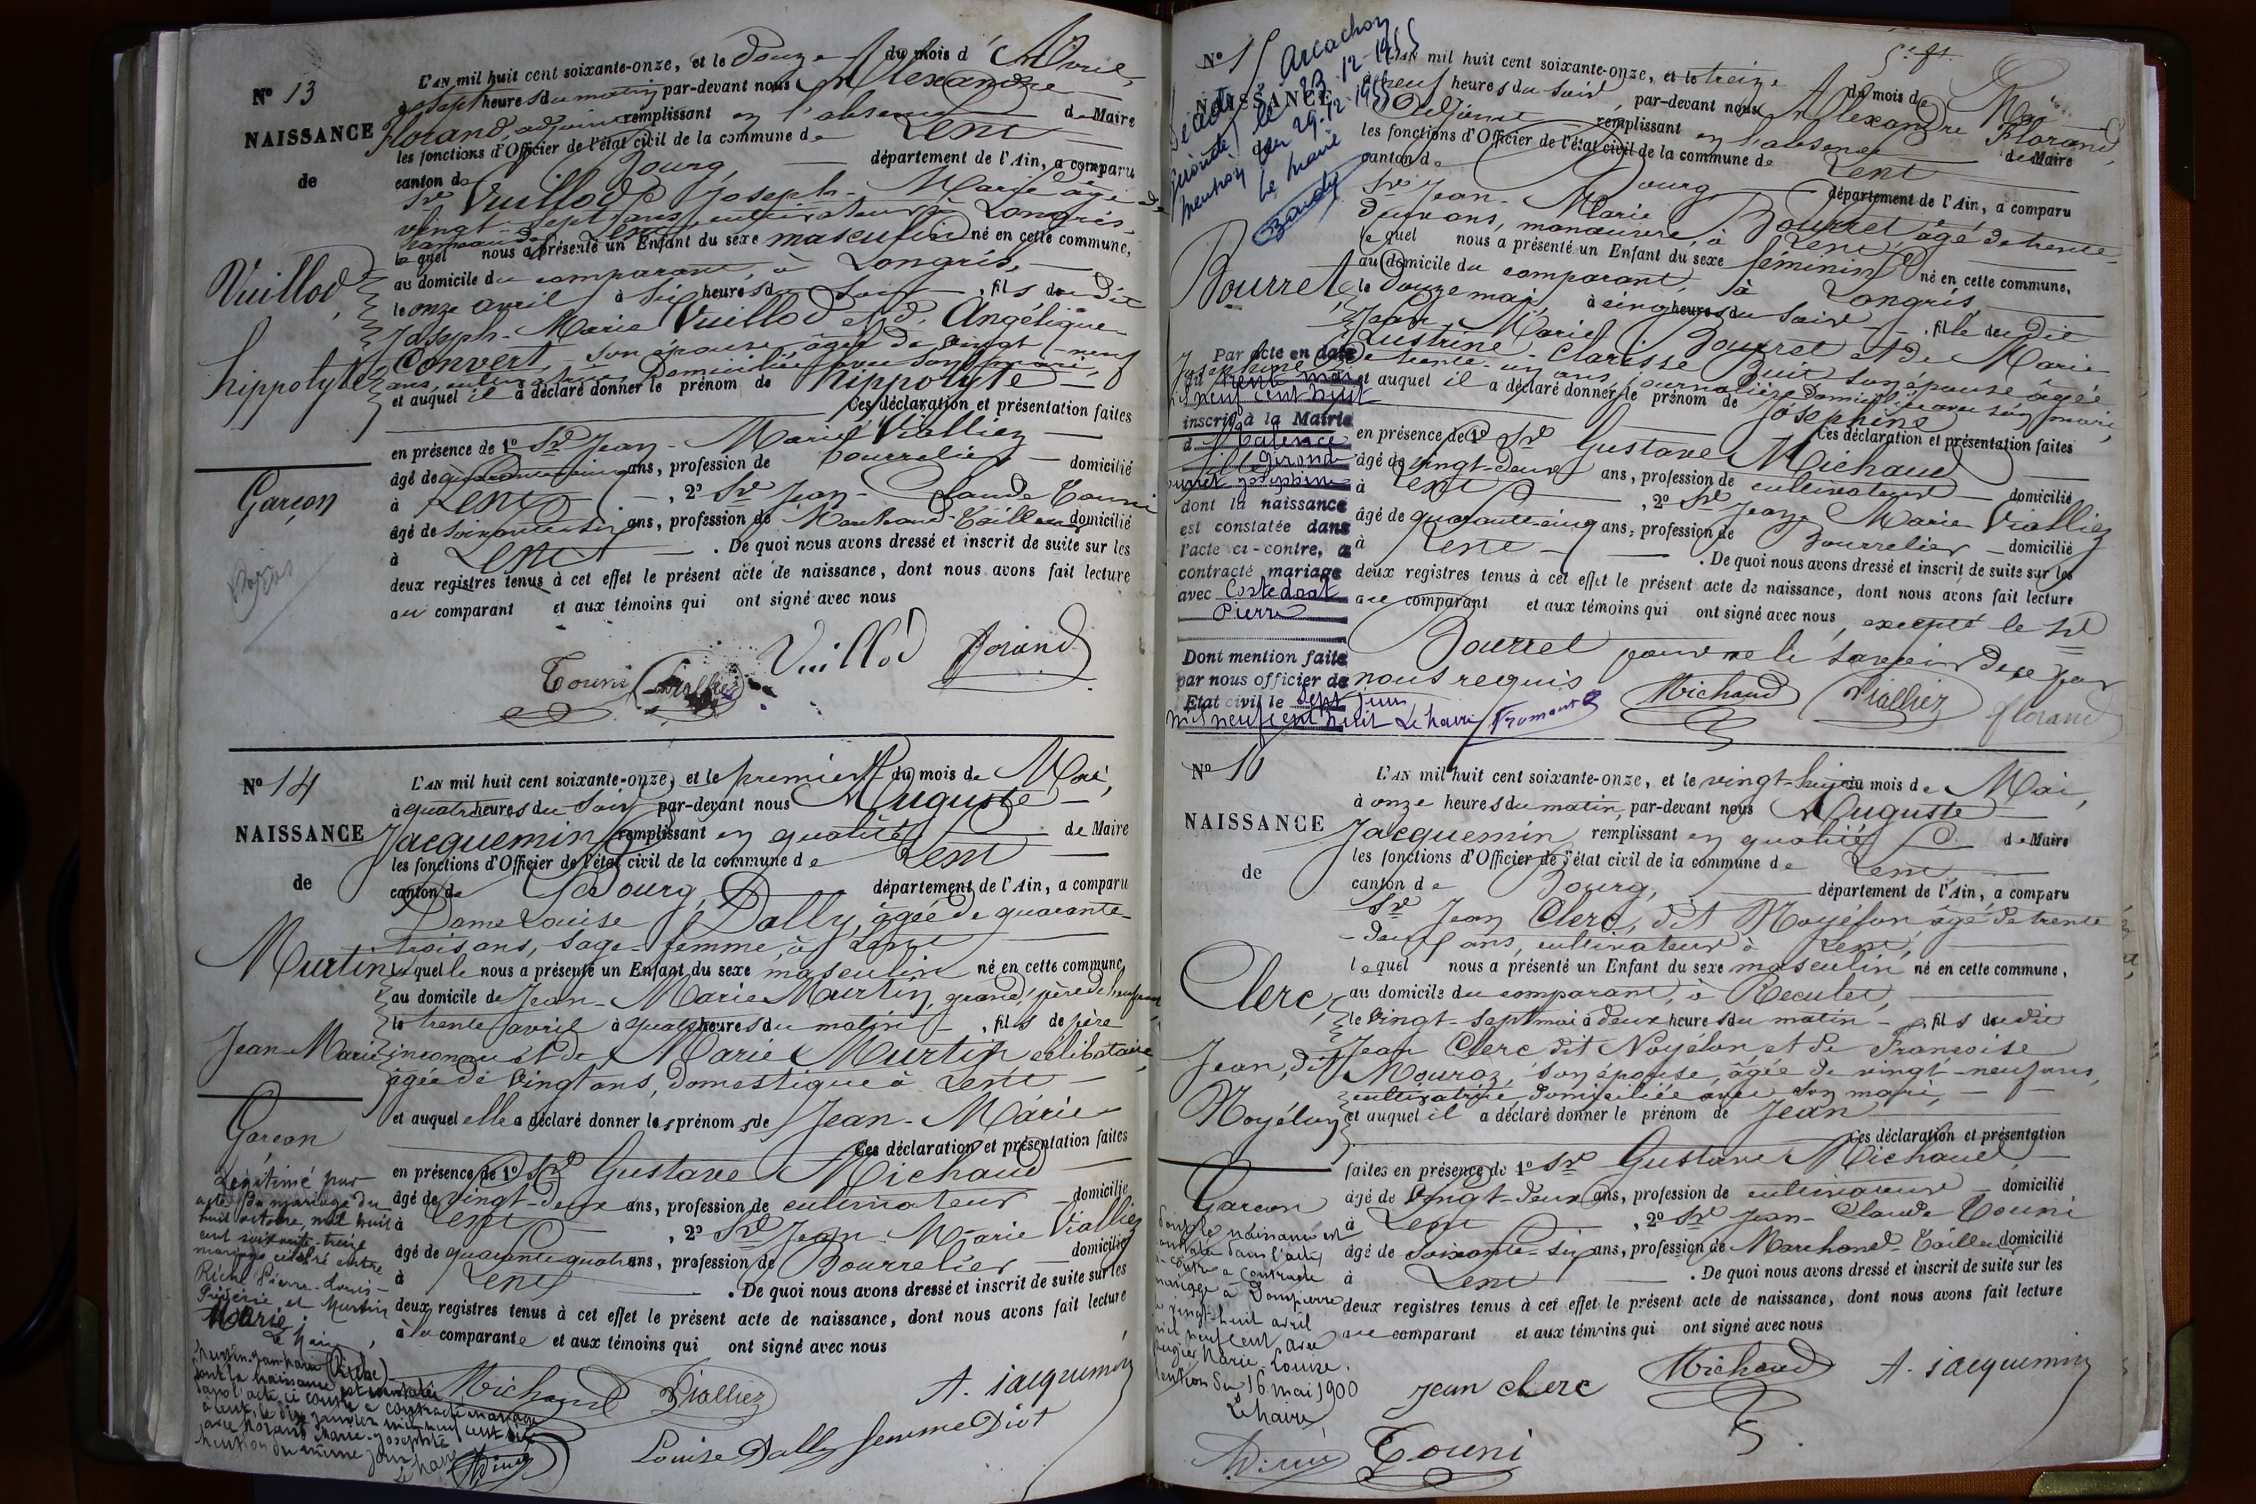 N° 13
NAISSANCE
de
Vuillod,
hippolyte
Garçon
L'AN mil huit cent soixante-onze, et le douze du mois d'Avril,
à sept heures du matin par-devant nous Alexandre
Florand, adjoint remplissant en l'absence de Maire
les fonctions d'Officier de l'état civil de la commune de Lent
canton de Bourg, département de l'Ain, a comparu
Sr Vuillod Joseph-Marie âgé de
vingt-sept ans, cultivateur à Longris,
hameau de Lent
lequel nous a présenté un Enfant du sexe masculin né en cette commune,
au domicile du comparant, à Longris,
le onze avril à six heures du soir, fils du dit
Joseph-Marie Vuillod et d'Angélique
Convert, son épouse âgée de vingt-neuf
ans, domiciliée avec son mari,
et auquel il a déclaré donner le prénom de hippolyte
Ces déclaration et présentation faites
en présence de 1° Sr Jean-Marie Vialliez
âgé de quarante-cinq ans, profession de bourrelier domicilié
à Lent, 2° Sr Jean-Claude Touni
âgé de soixante-six ans, profession de Marchand-Tailleur domicilié
à Lent. De quoi nous avons dressé et inscrit de suite sur les
deux registres tenus à cet effet le présent acte de naissance, dont nous avons fait lecture
au comparant et aux témoins qui ont signé avec nous
Vuillod florand
Touni Vialliez
N° 14
NAISSANCE
de
Murtin
Jean-Marie
Garçon
Légitimé par
acte de mariage du
huit octobre, mil huit
cent soixante-treize
mariage célébré entre
Riche Pierre-Louis-
et Murtin
Marie
Le Maire,
Murtin Jean-Marie (Riche)
dont la naissance est constatée
dans l'acte ci contre a contracté mariage
à Lent, le dix janvier mil neuf cent
avec Morand Marie-Josephte
Mention du même jour
Le Maire
L'AN mil huit cent soixante-onze, et le premier du mois de Mai,
à quatre heures du soir par-devant nous Auguste
Jacquemin remplissant en qualité de Maire
les fonctions d'Officier de l'état civil de la commune de Lent
canton de Bourg, département de l'Ain, a comparu
Dame Louise Dally, âgée de quarante-
trois ans, sage-femme, à Lent
laquelle nous a présenté un Enfant du sexe masculin né en cette commune,
au domicile de Jean-Marie Murtin, grand'père de l'enfant,
le trente avril à quatre heures du matin, fils de père
inconnu et de Marie Murtin célibataire,
âgée de vingt ans, domestique à Lent
et auquel elle a déclaré donner les prénoms de Jean-Marie
Ces déclaration et présentation faites
en présence de 1° Sr Gustave Michaud
âgé de vingt-deux ans, profession de cultivateur domicilié
à Lent, 2° Sr Jean-Marie Vialliez
âgé de quarante-quatre ans, profession de Bourrelier domicilié
à Lent. De quoi nous avons dressé et inscrit de suite sur les
deux registres tenus à cet effet le présent acte de naissance, dont nous avons fait lecture
à la comparante et aux témoins qui ont signé avec nous
Michaud Vialliez A. jacquemin
Louise Dally femme Diot
N° 15
NAISSANCE
Arcachon
(Gironde) le 23-12-1955
mention du 29-12-1955
Le Maire
Bourret
Josephine
Par acte en date
du trente mai
mil neuf cent huit
inscrit à la Mairie
d Talence
Gironde
Bourret Josephine
dont la naissance
est constatée dans
l'acte ci-contre, a
contracté mariage
avec Costedoat
Pierre
Dont mention faite
par nous officier de
Etat civil le sept juin
mil neuf cent huit Le Maire
L'AN mil huit cent soixante-onze, et le treize du mois de Mai
à neuf heures du soir, par-devant nous Alexandre Florand,
Adjoint remplissant en l'absence de Maire
les fonctions d'Officier de l'état civil de la commune de Lent
canton de Bourg département de l'Ain, a comparu
Sr Jean-Marie Bourret, âgé de trente-
deux ans, manœuvre, à Lent,
lequel nous a présenté un Enfant du sexe féminin né en cette commune,
au domicile du comparant, à Longris,
le douze mai, à cinq heures du soir, fille du dit
Jean Marie Bourret et de Marie
Clarisse Buit, son épouse âgée
de trente-un ans, journalière domiciliée avec son mari,
et auquel il a déclaré donner le prénom de Joséphine
Ces déclaration et présentation faites
en présence de 1° Sr Gustave Michaud
âgé de vingt-deux ans, profession de cultivateur domicilié
à Lent, 2° Sr Jean Marie Vialliez
âgé de quarante-cinq ans, profession de Bourrelier domicilié
à Lent. De quoi nous avons dressé et inscrit de suite sur les
deux registres tenus à cet effet le présent acte de naissance, dont nous avons fait lecture
au comparant et aux témoins qui ont signé avec nous, excepté le Sr
Bourret pour ne le savoir de ce par
nous requis
Michaud Vialliez florand
N° 16
NAISSANCE
de
Clerc,
Jean, dit
Noyélon
Garçon
dont la naissance est
constatée dans l'acte
ci-contre a contracté
mariage à Dompierre
le vingt-huit avril
mil neuf cent avec
Marie-Louise.
Mention du 16 mai 1900
Le Maire
L'AN mil huit cent soixante-onze, et le vingt-huit du mois de Mai,
à onze heures du matin, par-devant nous Auguste
Jacquemin remplissant en qualité de Maire
les fonctions d'Officier de l'état civil de la commune de Lent
canton de Bourg, département de l'Ain, a comparu
Sr Jean Clerc, dit Noyélon, âgé de trente
-deux ans, cultivateur à Lent,
lequel nous a présenté un Enfant du sexe masculin né en cette commune,
au domicile du comparant, à Reculet,
le vingt-sept mai à deux heures du matin, fils du dit
Jean Clerc dit Noyélon, et de Françoise
Mouroz, son épouse, âgée de vingt-neuf ans,
cultivatrice, domiciliée avec son mari,
et auquel il a déclaré donner le prénom de Jean
Ces déclaration et présentation
faites en présence de 1° Sr Gustave Michaud
âgé de vingt-deux ans, profession de cultivateur domicilié
à Lent, 2° Sr Jean-Claude Touni
âgé de soixante-six ans, profession de Marchand-Tailleur domicilié
à Lent. De quoi nous avons dressé et inscrit de suite sur les
deux registres tenus à cet effet le présent acte de naissance, dont nous avons fait lecture
au comparant et aux témoins qui ont signé avec nous
jean clerc Michaud A. jacquemin
Touni